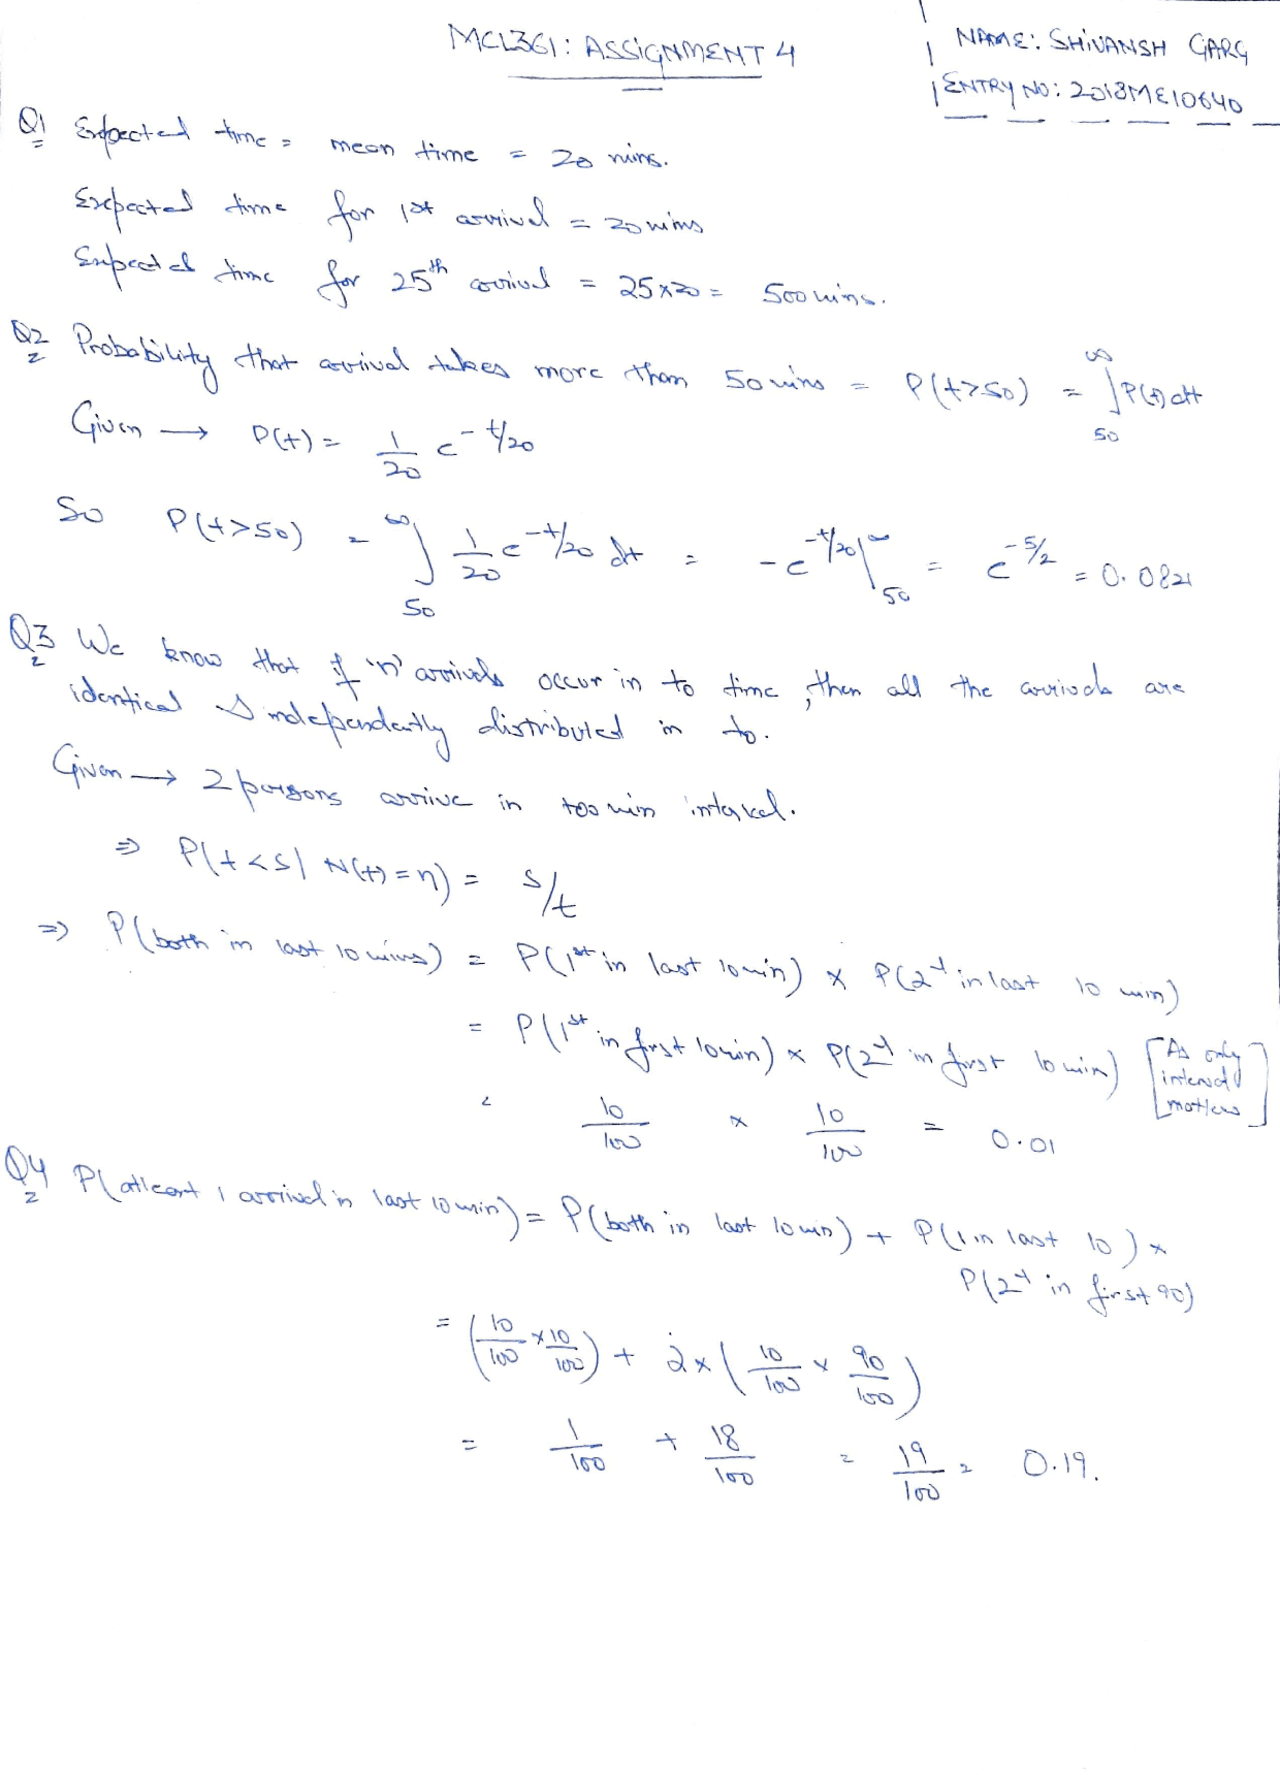 MCL361: ASSIGNMENT 4
NAME: SHIVANSH GARG
ENTRY NO: 2018ME10640
Q1 Expected time = mean time = 20 mins.
Expected time for 1st arrival = 20 mins
Expected time for 25th arrival = 25x20 = 500 mins.
Q2 Probability that arrival takes more than 50 mins = P(t>50) = ∫₅₀^∞ P(t) dt
Given → P(t) = 1/20 e^(-t/20)
So P(t>50) = ∫₅₀^∞ 1/20 e^(-t/20) dt = -e^(-t/20)|₅₀^∞ = e^(-5/2) = 0.0821
Q3 We know that if 'n' arrivals occur in to time, then all the arrivals are
identical & independently distributed in to.
Given → 2 persons arrive in 100 min interval.
⇒ P(t<s | N(t)=n) = s/t
⇒ P(both in last 10 mins) = P(1st in last 10min) x P(2nd in last 10 min)
= P(1st in first 10min) x P(2nd in first 10 min) [As only interval matters]
= 10/100 x 10/100 = 0.01
Q4 P(atleast 1 arrival in last 10 min) = P(both in last 10 min) + P(1 in last 10) x
P(2nd in first 90)
= (10/100 x 10/100) + 2x(10/100 x 90/100)
= 1/100 + 18/100 = 19/100 = 0.19.